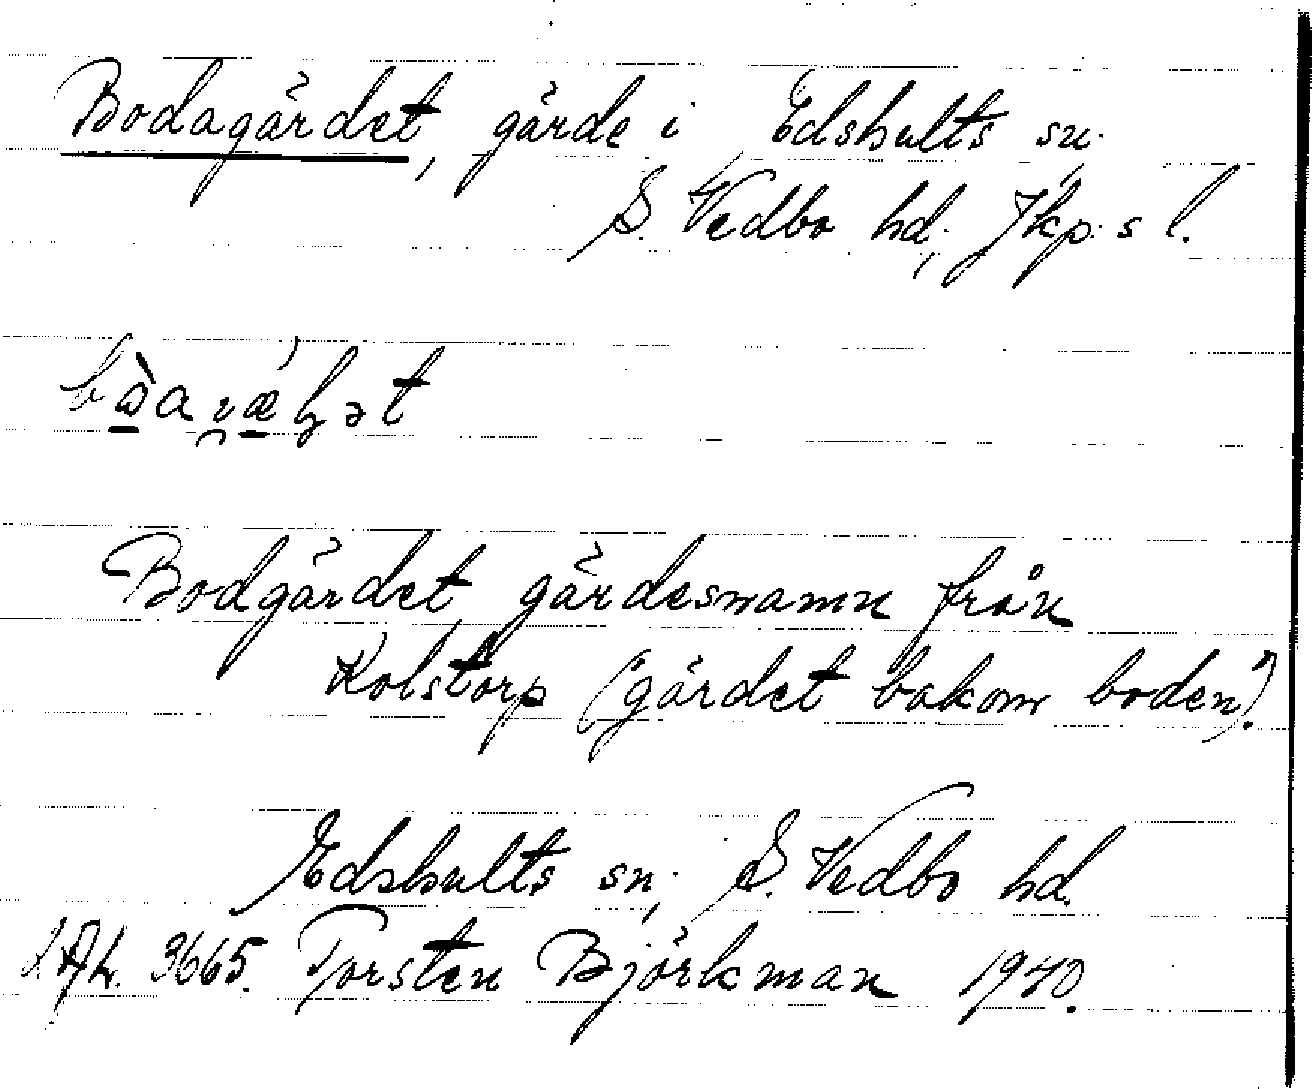 Bodagärdet, gärde i Edshults sn.,
S. Vedbo hd., Jkp:s l.
Bodgärdet, gärdesnamn från
Kolstorp ("gärdet bakom boden").
Edshults sn., S. Vedbo hd.
3665. Torsten Björkman 1940.